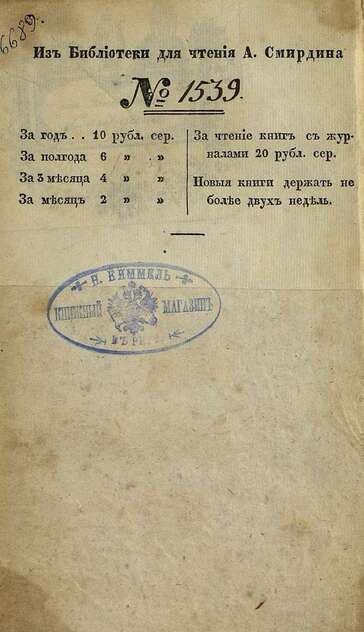 6689.
Изъ Библіотеки для чтенія А. Смирдина
№ 1539.
За годъ . . 10 рубл. сер.
За полгода 6 » . »
За 3 мѣсяца 4 » »
За мѣсяцъ 2 » »
За чтеніе книгъ съ жур-
налами 20 рубл. сер.
Новыя книги держать не
болѣе двухъ недѣль.
Н. КИММЕЛЬ
КНИЖНЫЙ МАГАЗИНЪ
ВЪ РИГѢ